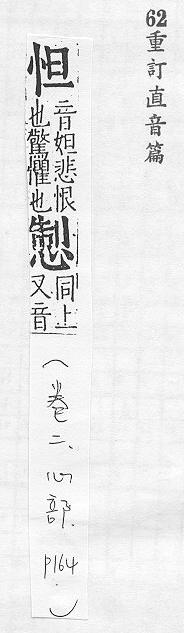 62 重訂直音篇
怛
音妲悲恨
也驚懼也
同上
又音
(卷二、心部. P164.)